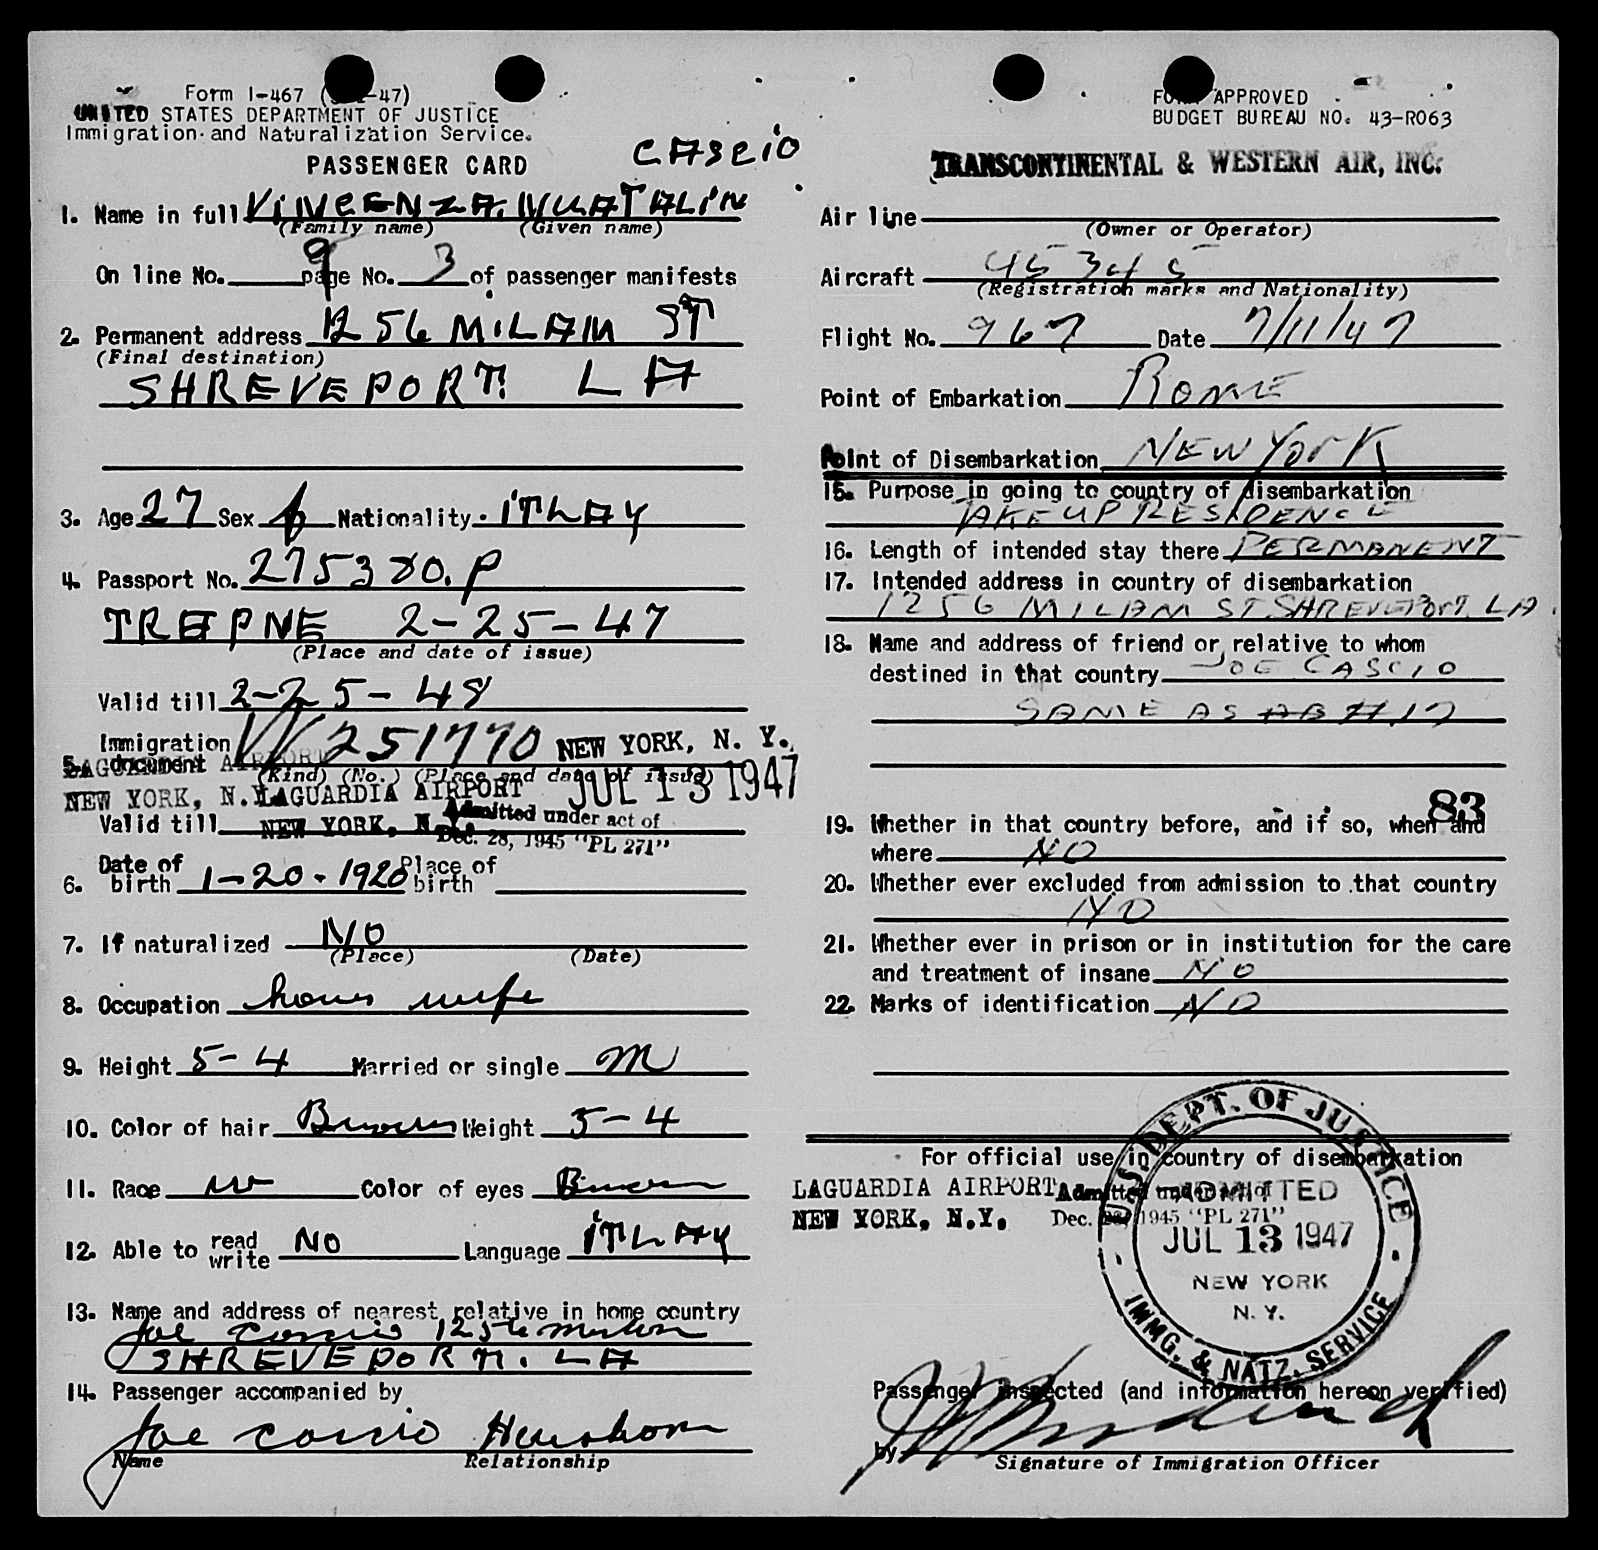 Form I-467 -47)
UNITED STATES DEPARTMENT OF JUSTICE
Immigration and Naturalization Service.
PASSENGER CARD
CASCIO
1. Name in full VINCENZA
(Family name) (Given name)
On line No. 9 page No. 3 of passenger manifests
2. Permanent address 1256 MILAM ST
(Final destination)
SHREVEPORT. LA
3. Age 27 Sex f Nationality ITLAY
4. Passport No. P
2-25-47
(Place and date of issue)
Valid till 2-25-48
Immigration
5. document 251770 NEW YORK, N. Y.
(Kind) (No.) (Place and date of issue)
LAGUARDIA AIRPORT
NEW YORK, N.Y.
LAGUARDIA AIRPORT JUL 13 1947
NEW YORK, N.Y. Admitted under act of
Dec. 28, 1945 "PL 271"
Valid till
6. Date of birth 1-20-1920 Place of birth
7. If naturalized NO
(Place) (Date)
8. Occupation hous wife
9. Height 5-4 Married or single M
10. Color of hair Brown Weight 5-4
11. Race W Color of eyes Brown
12. Able to read write NO Language ITLAY
13. Name and address of nearest relative in home country
Joe Cascio 1256
SHREVEPORT. LA
14. Passenger accompanied by
Joe Cascio
Name Relationship
FORM APPROVED
BUDGET BUREAU NO. 43-R063
TRANSCONTINENTAL & WESTERN AIR, INC.
Air line
(Owner or Operator)
Aircraft 45345
(Registration marks and Nationality)
Flight No. 967 Date 7/11/47
Point of Embarkation ROME
Point of Disembarkation NEW YORK
15. Purpose in going to country of disembarkation
TAKE UP RESIDENCE
16. Length of intended stay there PERMANENT
17. Intended address in country of disembarkation
1256 MILAM ST. SHREVEPORT. LA.
18. Name and address of friend or relative to whom
destined in that country JOE CASCIO
SAME AS AB #.17
83
19. Whether in that country before, and if so, when and
where NO
20. Whether ever excluded from admission to that country
NO
21. Whether ever in prison or in institution for the care
and treatment of insane NO
22. Marks of identification NO
For official use in country of disembarkation
LAGUARDIA AIRPORT
NEW YORK, N.Y.
Admitted under act of
Dec. 28, 1945 "PL 271"
U.S. DEPT. OF JUSTICE
ADMITTED
JUL 13 1947
NEW YORK
N. Y.
IMMG. & NATZ. SERVICE
Passenger inspected (and information hereon verified)
by
Signature of Immigration Officer